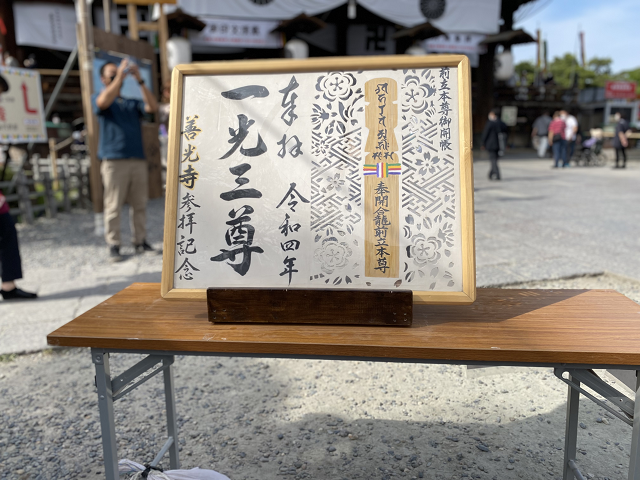 前立本尊御開帳
奉開眷龍前立本尊
奉拝 令和四年
一光三尊
善光寺参拝記念